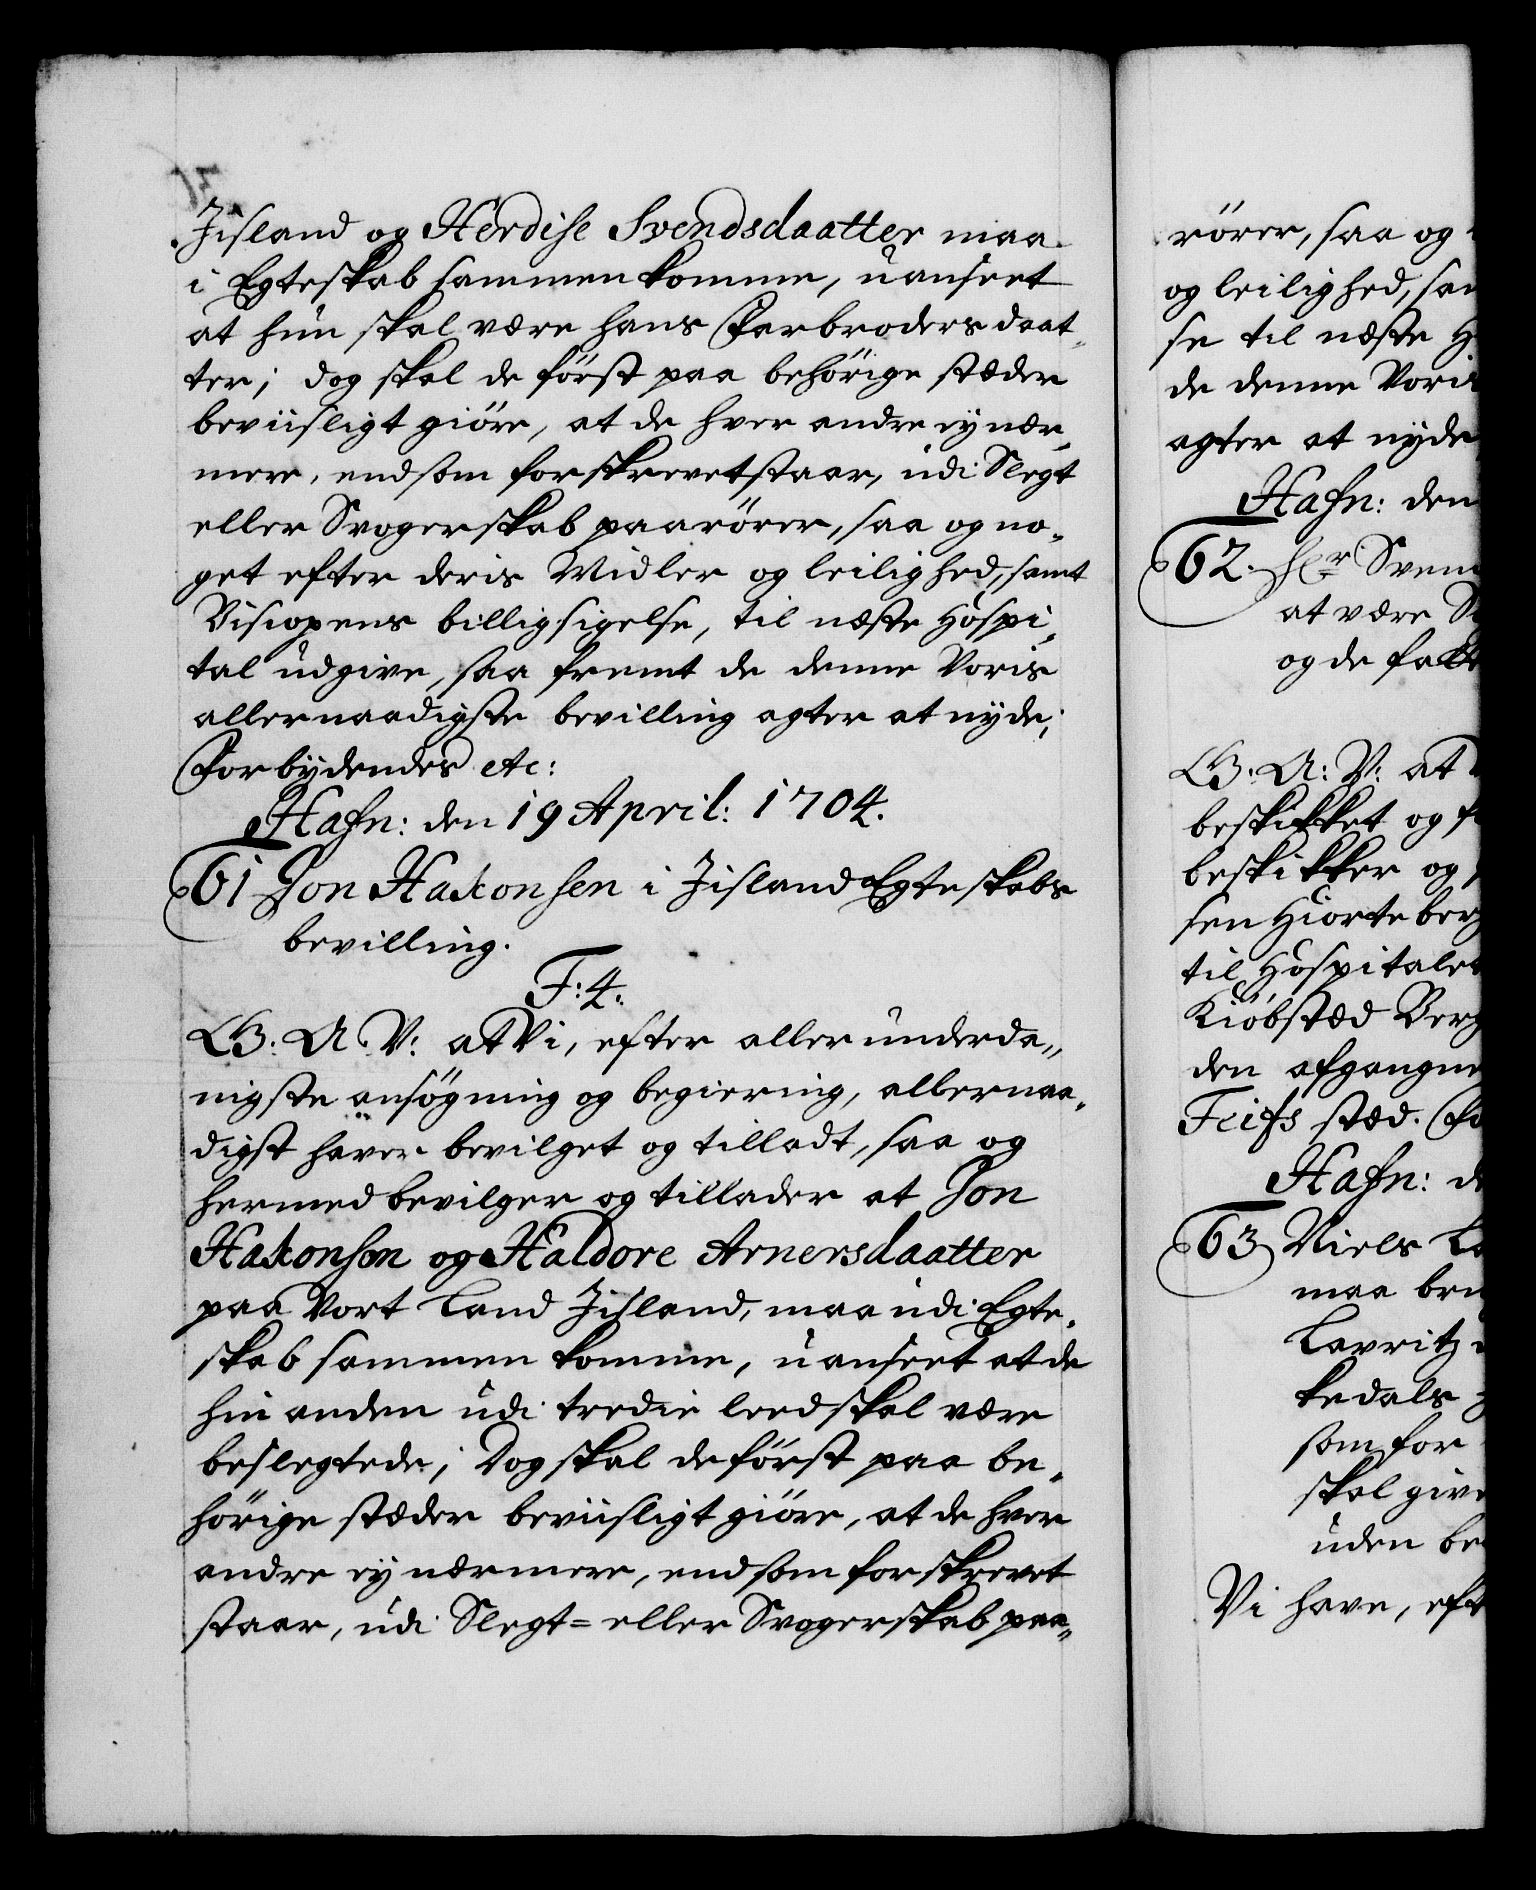 Jisland og Herdise Svendsdaatter maa
i Egteskab sammen komme, uanseet
at hun skal være hans Farbroders daat-
ter; dog skal de först paa behörige stæder
beviisligt giöre, at de hver andre ey nær-
mere, end som forskrevet staar, udi Slegt
eller Svogerskab paarörer, saa og no-
get efter deris Midler og leilighed, samt
Biscopens billigsigelse, til næste Hospi-
tal udgive, saa fremt de denne Voris
allernaadigste bevilling agter at nyde;
Forbydendes etc:
Hafn: den 19 April: 1704.
61 Jon Hakonsen i Jisland Egteskabs
bevilling.
F: 4.
G: A: V: at Vi, efter allerunderda-
nigste ansögning og begiering, allernaa-
digst haver bevilget og tilladt, saa og
hermed bevilger og tillader at Jon
Hakonsen og Haldore Arnersdaatter
paa Vort Land Jisland, maa udi Egte-
skab sammen komme, uanseet at de
hin anden udi tredie leed skal være
beslegtede; Dog skal de först paa be-
hörige stæder beviisligt giöre, at de hver
andre ey nærmere, end som forskrevet
staar, udi Slegt= eller Svogerskab paa-
rörer, saa og
og leilighed, sam
se til næste H
de denne Voris
agter at nyde
Hafn: den
62. Hr Sven
at være
og de fatt
G: A: V: at
beskikket og f
beskikker og
sen Hiorteberg
til Hospitalet
Kiöbstæd Berg
den afgangne
Feifs stæd. Fo
Hafn: de
63 Niels La
maa bru
Lavritz
kedals
som for
skal give
uden be
Vi have, eft